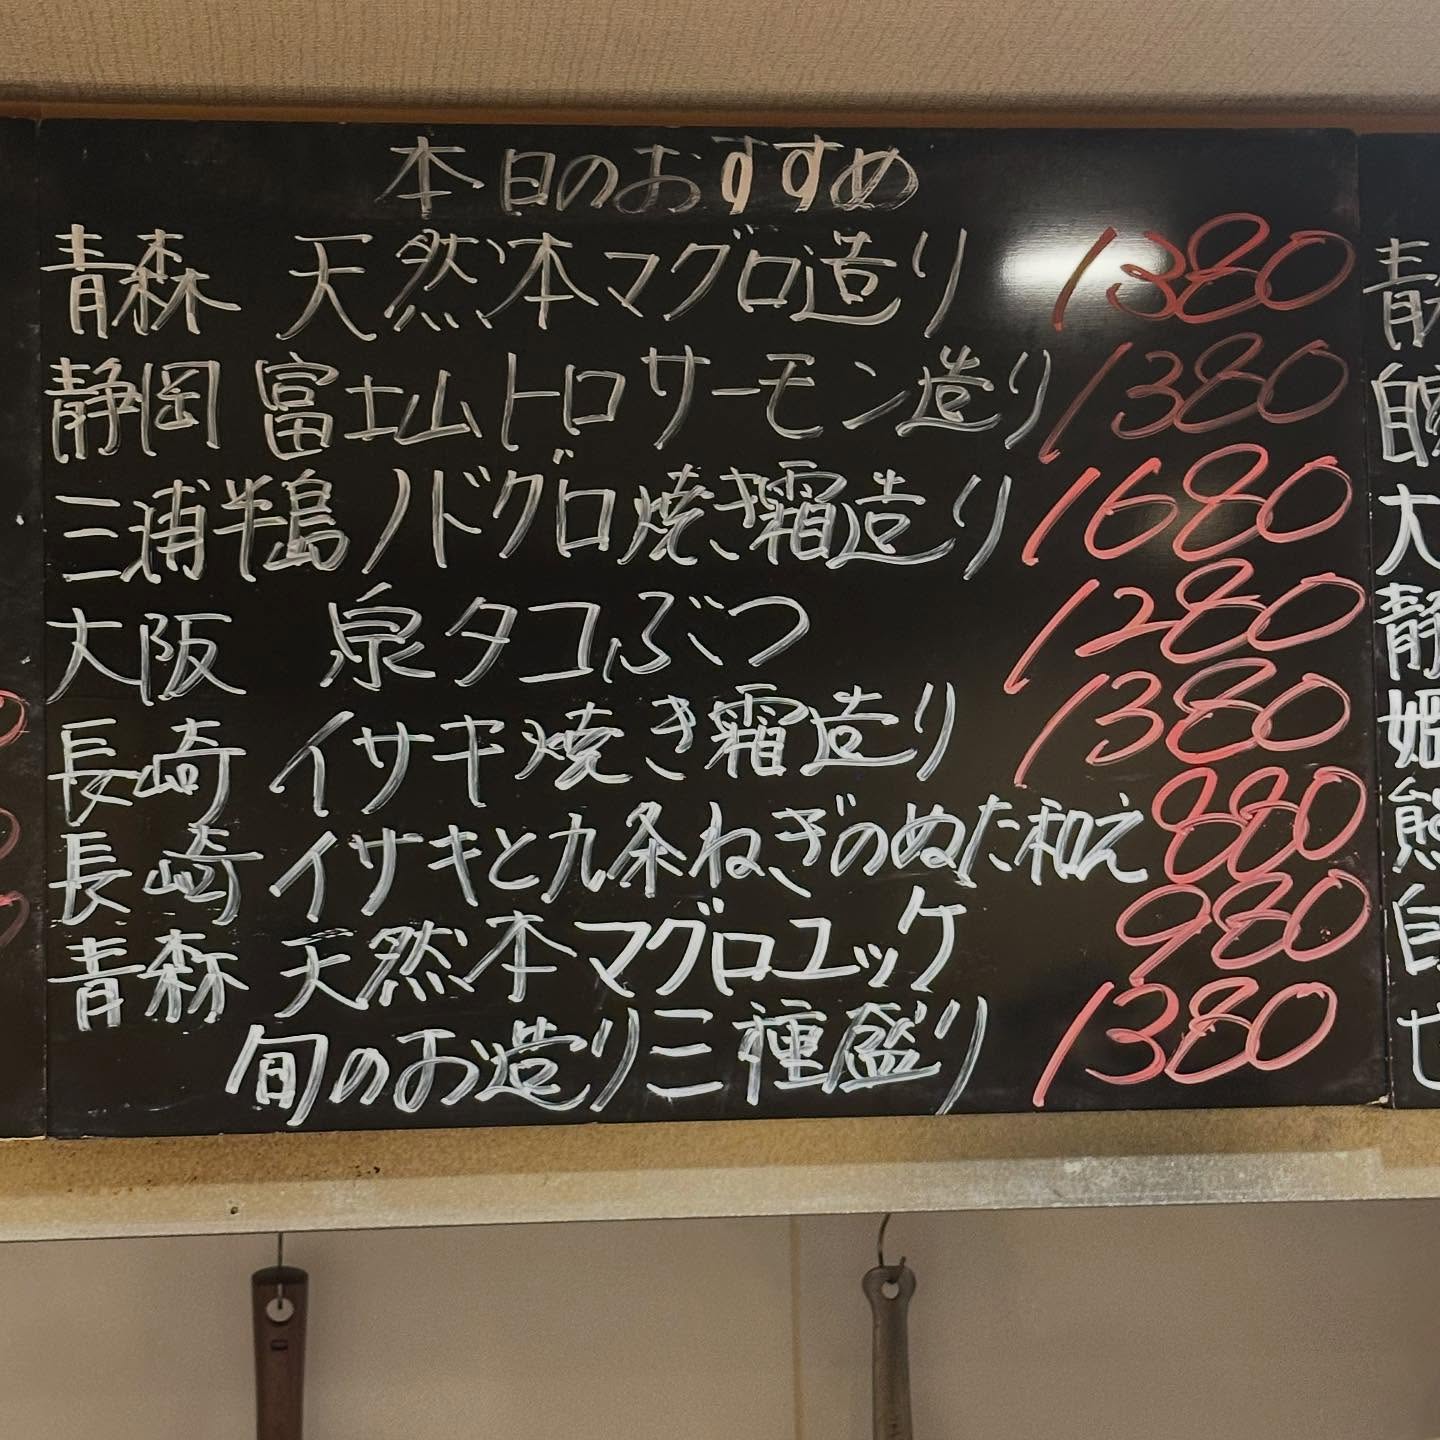 本日のおすすめ
青森 天然本マグロ造り 1380
静岡 富士山トロサーモン造り 1380
三浦半島 ノドグロ焼き霜造り 1680
大阪 泉タコぶつ 1280
長崎 イサキ焼き霜造り 1380
長崎 イサキと九条ねぎのぬた和え 880
青森 天然本マグロユッケ 980
旬のお造り三種盛り 1380
青
自
大
静
姫
熊
自